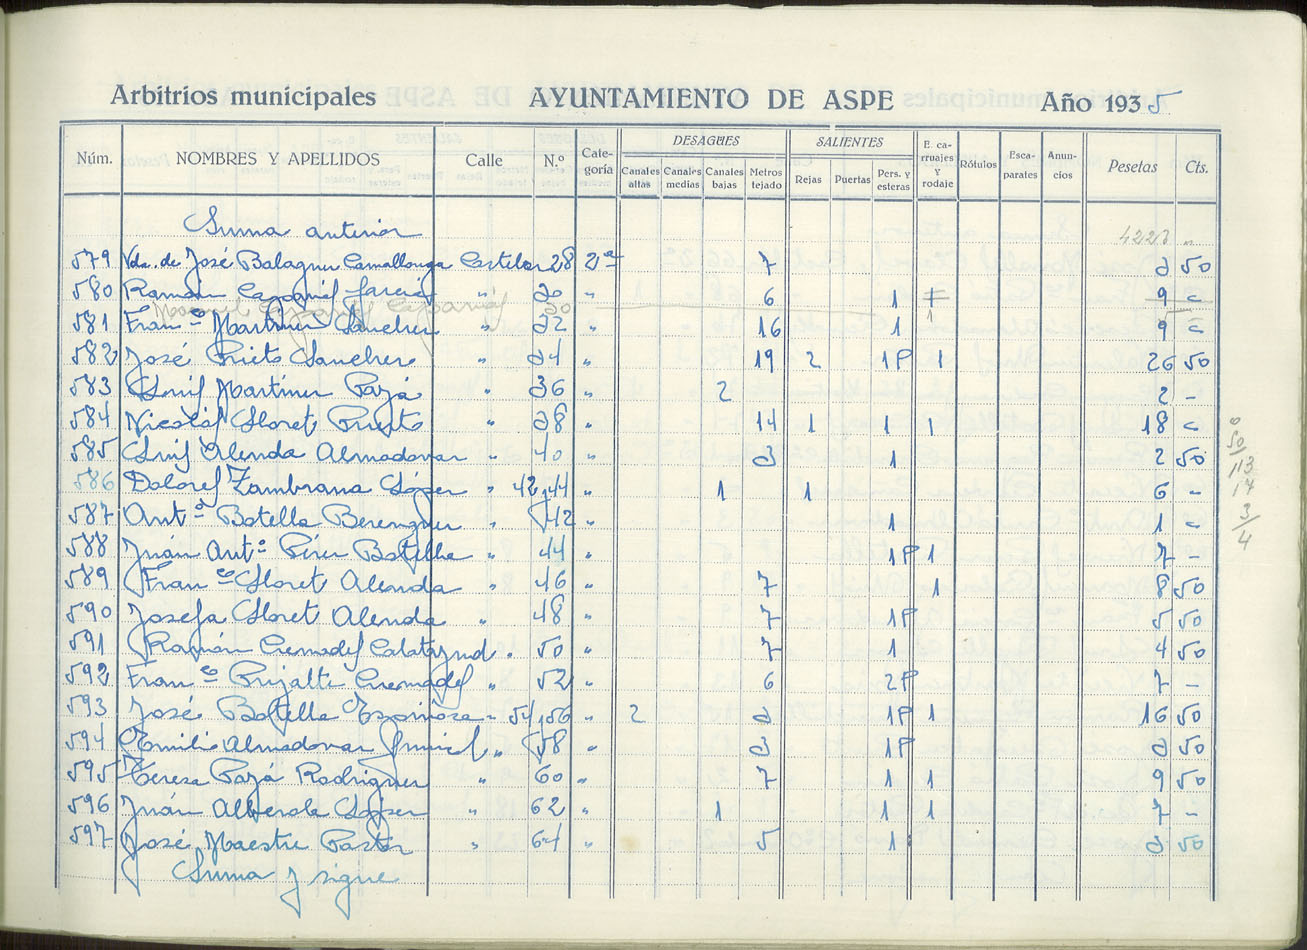 Arbitrios municipales AYUNTAMIENTO DE ASPE Año 1935
Núm. NOMBRES Y APELLIDOS Calle N.º Cate-goría DESAGÜES SALIENTES E. ca-rruajes y rodaje Rótulos Esca-parates Anun-cios Pesetas Cts.
Canales altas Canales medias Canales bajas Metros tejado Rejas Puertas Pers. y esteras
Suma anterior 4223 "
579 Vda. de José Balaguer Camallonga Castelar 28 2ª 7 3 50
580 Ramón García " 30 " 6 1 9 "
581 Franco Martinez Sanchez " 32 " 16 1 1 9 "
582 José Prieto Sanchez " 34 " 19 2 1P 1 26 50
583 Luis Martinez Payá " 36 " 2 2 -
584 Nicolás Lloret Puerto " 38 " 14 1 1 1 18 "
585 Luis Alenda Almodovar " 40 " 3 1 2 50
586 Dolores Zambrana López " 42,44 " 1 1 6 -
587 Antº Botella Berenguer " 42 " 1 1 "
588 Juán Antº Pérez Botella " 44 " 1P 1 7 -
589 Franco Lloret Alenda " 46 " 7 1 8 50
590 Josefa Lloret Alenda " 48 " 7 1P 5 50
591 Ramón Cremades Calatayud " 50 " 7 1 4 50
592 Franco Pujalte Cremades " 52 " 6 2P 7 -
593 José Botella Espinosa " 54,56 " 2 3 1P 1 16 50
594 Emilio Almodovar " 58 " 3 1P 3 50
595 Teresa Payá Rodriguez " 60 " 7 1 1 9 50
596 Juán Alberola López " 62 " 1 1 1 7 -
597 José Maestre Pastor " 64 " 5 1 3 50
Suma y sigue